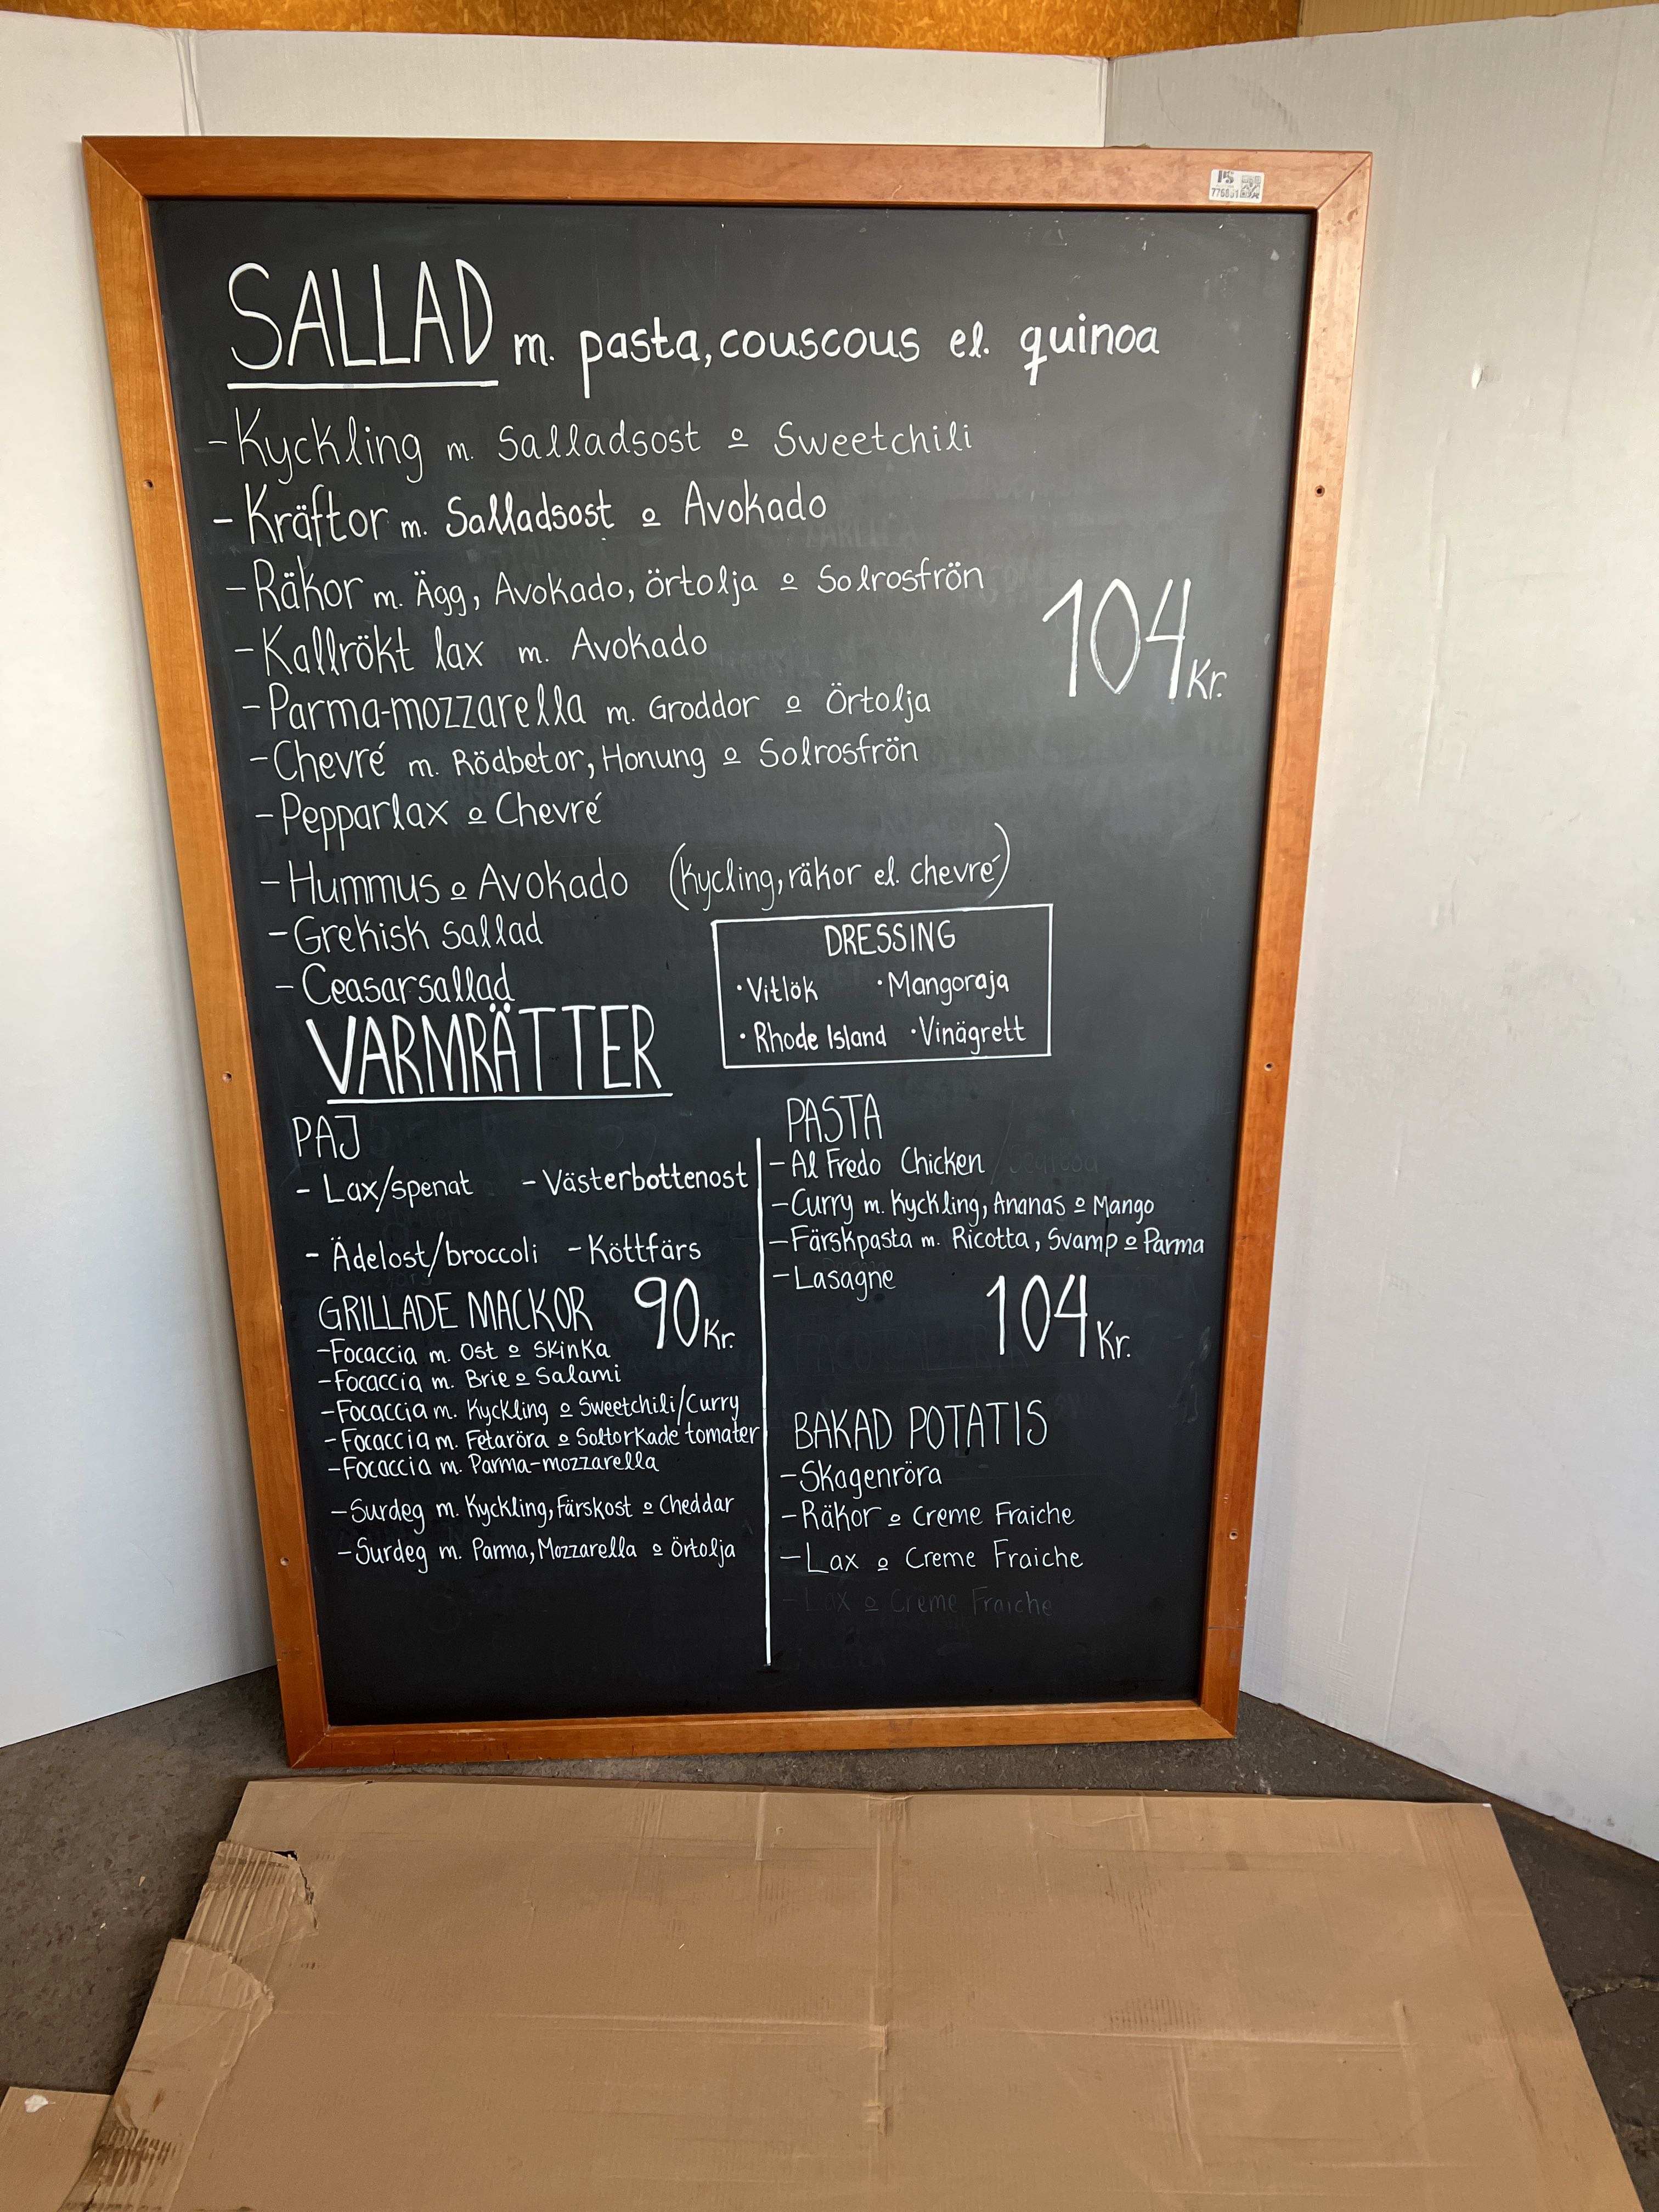 PS
776801
SALLAD m. pasta, couscous el. quinoa
-Kyckling m. Salladsost o Sweetchili
-Kräftor m. Salladsost o Avokado
-Räkor m. Ägg, Avokado, örtolja o Solrosfrön
-Kallrökt lax m. Avokado
104 Kr.
-Parma-mozzarella m. Groddor o Örtolja
-Chevré m. Rödbetor, Honung o Solrosfrön
-Pepparlax o Chevré
-Hummus o Avokado (kycling, räkor el. chevré)
-Grekisk sallad
-Ceasarsallad
DRESSING
·Vitlök ·Mangoraja
·Rhode Island ·Vinägrett
VARMRÄTTER
PAJ
- Lax/spenat - Västerbottenost
- Ädelost/broccoli - Köttfärs
GRILLADE MACKOR 90 Kr.
-Focaccia m. Ost o Skinka
-Focaccia m. Brie o Salami
-Focaccia m. Kyckling o Sweetchili/Curry
-Focaccia m. Fetaröra o Soltorkade tomater
-Focaccia m. Parma-mozzarella
-Surdeg m. Kyckling, Färskost o Cheddar
-Surdeg m. Parma, Mozzarella o örtolja
PASTA
-Al Fredo Chicken
-Curry m. Kyckling, Ananas o Mango
-Färskpasta m. Ricotta, Svamp o Parma
-Lasagne
104 Kr.
BAKAD POTATIS
-Skagenröra
-Räkor o Creme Fraiche
-Lax o Creme Fraiche
-Lax o Creme Fraiche